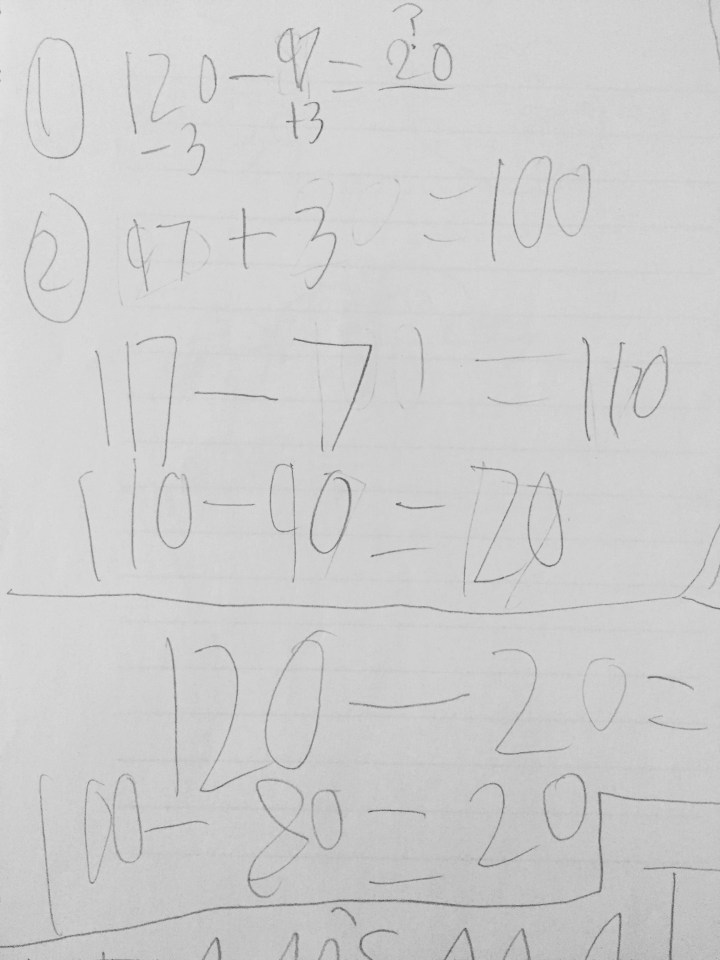 ?
① 120 - 97 = 20
-3 +3
② 97 + 3 = 100
117 - 7 = 110
110 - 90 = 20
120 - 20 =
100 - 80 = 20